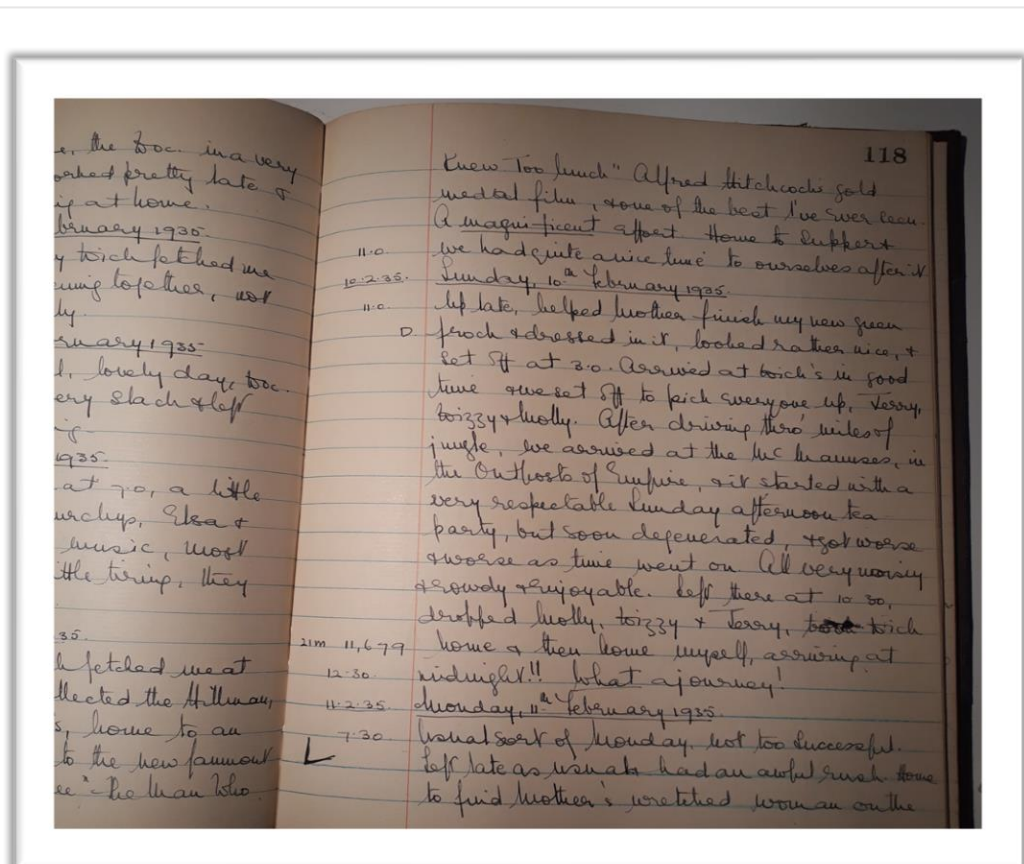 e, the Doc. in a very
orked pretty late &
ig at home.
bruary 1935
y Wich fetched me
ening together, not
ly.
ruary 1935
l, lovely day, Doc.
ery slack & left
g
1935
at 7.0, a little
urchup, Elsa &
music, most
ttle tiring, they
35.
h fetched me at
llected the Hillman,
s, home to an
to the new
ee "The Man Who
118
Knew Too Much" Alfred Hitchcock's gold
medal film, & one of the best I've ever seen.
A magnificent effort. Home to supper &
11.0 we had quite a nice time to ourselves after it
10.2.35. Sunday, 10th February 1935.
11.0 Up late, helped Mother finish my new green
D frock & dressed in it, looked rather nice, &
set off at 3.0. Arrived at Wich's in good
time & we set off to pick everyone up, Jerry,
Wizzy & Molly. After driving thro' miles of
jungle, we arrived at the in
the Outposts of Empire, & it started with a
very respectable Sunday afternoon tea
party, but soon degenerated, & got worse
& worse as time went on. All very noisy
& rowdy & enjoyable. Left there at 10.30,
dropped Molly, Wizzy & Jerry, Wich
21m 11,679 home & then home myself, arriving at
12.30 midnight!! What a journey!
11.2.35. Monday, 11th February 1935.
7.30 Usual sort of Monday, not too successful.
L Left late as usual & had an awful rush. Home
to find Mother's wretched woman on the